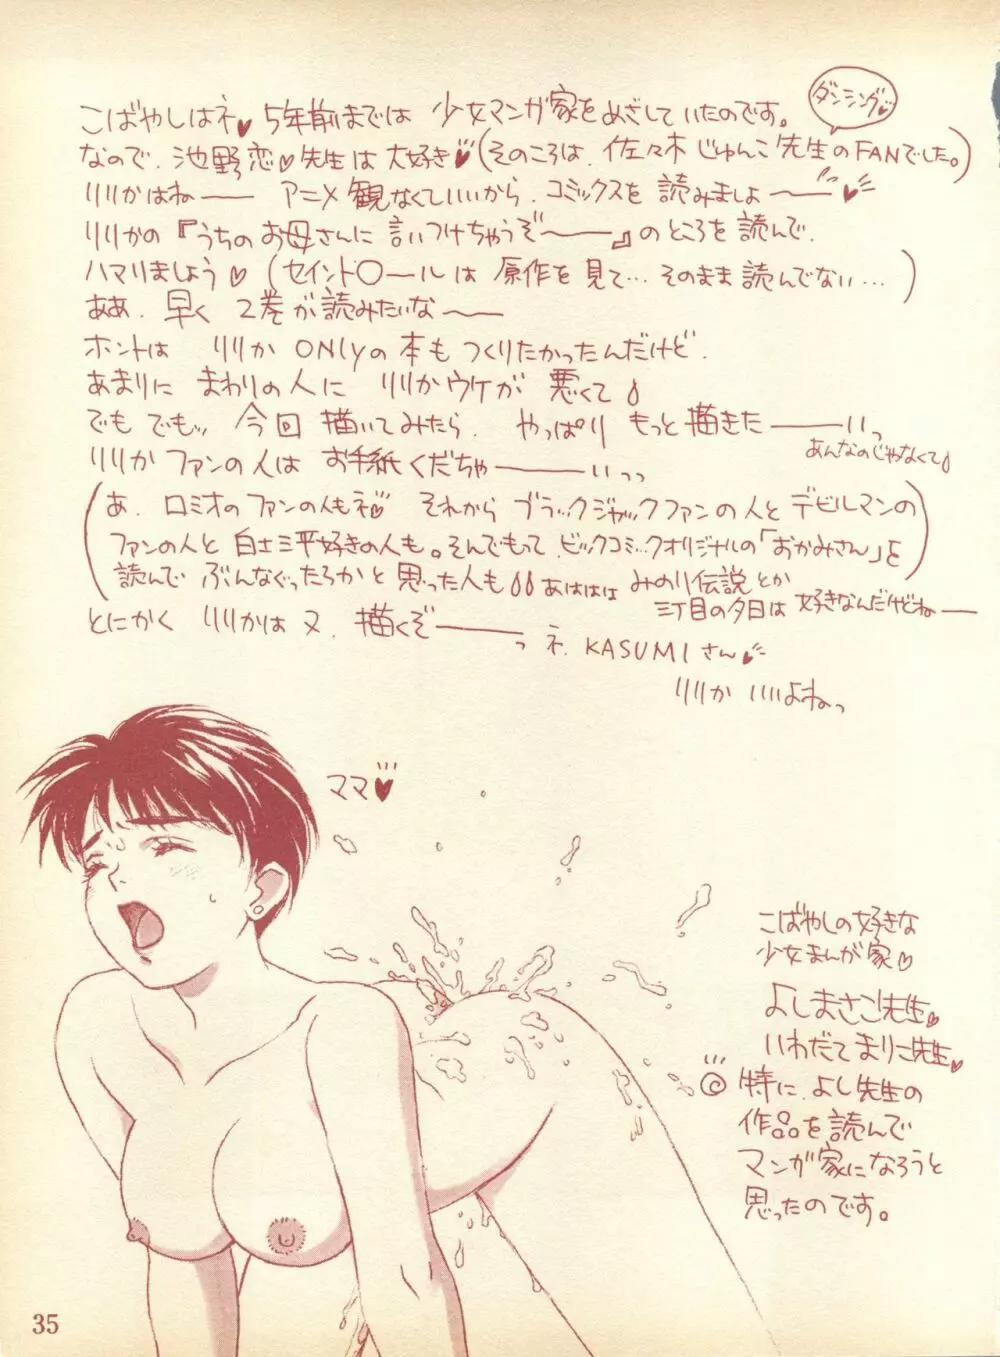 こばやしはネ♥ 5年前までは 少女マンガ家をめざしていたのです。
ダンシング♥
なので、池野恋♡先生は大好き♥(そのころは、佐々木じゅんこ先生のFANでした。)
リリかはねー アニメ観なくていいから、コミックスを読みましょー♥
リリかの『うちのお母さんに言いつけちゃうぞー』のところを読んで、
ハマりましょう♡(セイント〇ールは原作を見て…そのまま読んでない…)
ああ、早く 2巻が読みたいなー
ホントは リリか ONlyの本もつくりたかったんだけど、
あまりに まわりの人に リリかウケが 悪くて
でも でもッ 今回 描いてみたら、やっぱり もっと描きたーいっ
あんなのじゃなくて
リリか ファンの人は お手紙くだちゃーいっっ
(あ、ロミオのファンの人もネ♥ それから ブラックジャックファンの人とデビルマンの
ファンの人と 白土三平好きの人も。そんでもって ビックコミックオリジナルの「おかみさん」を
読んで ぶんなぐったろかと思った人も あははは みのり伝説とか
三丁目の夕日は 好きなんだけどねー
とにかく リリかは又、描くぞーっ ネ、KASUMIさん♥
リリか いいよねっ
ママ♥
こばやしの好きな
少女まんが家♡
よしまさこ先生♥
いわだてまりこ先生♥
特に、よし先生の
作品を読んで
マンガ家になろうと
思ったのです。
35